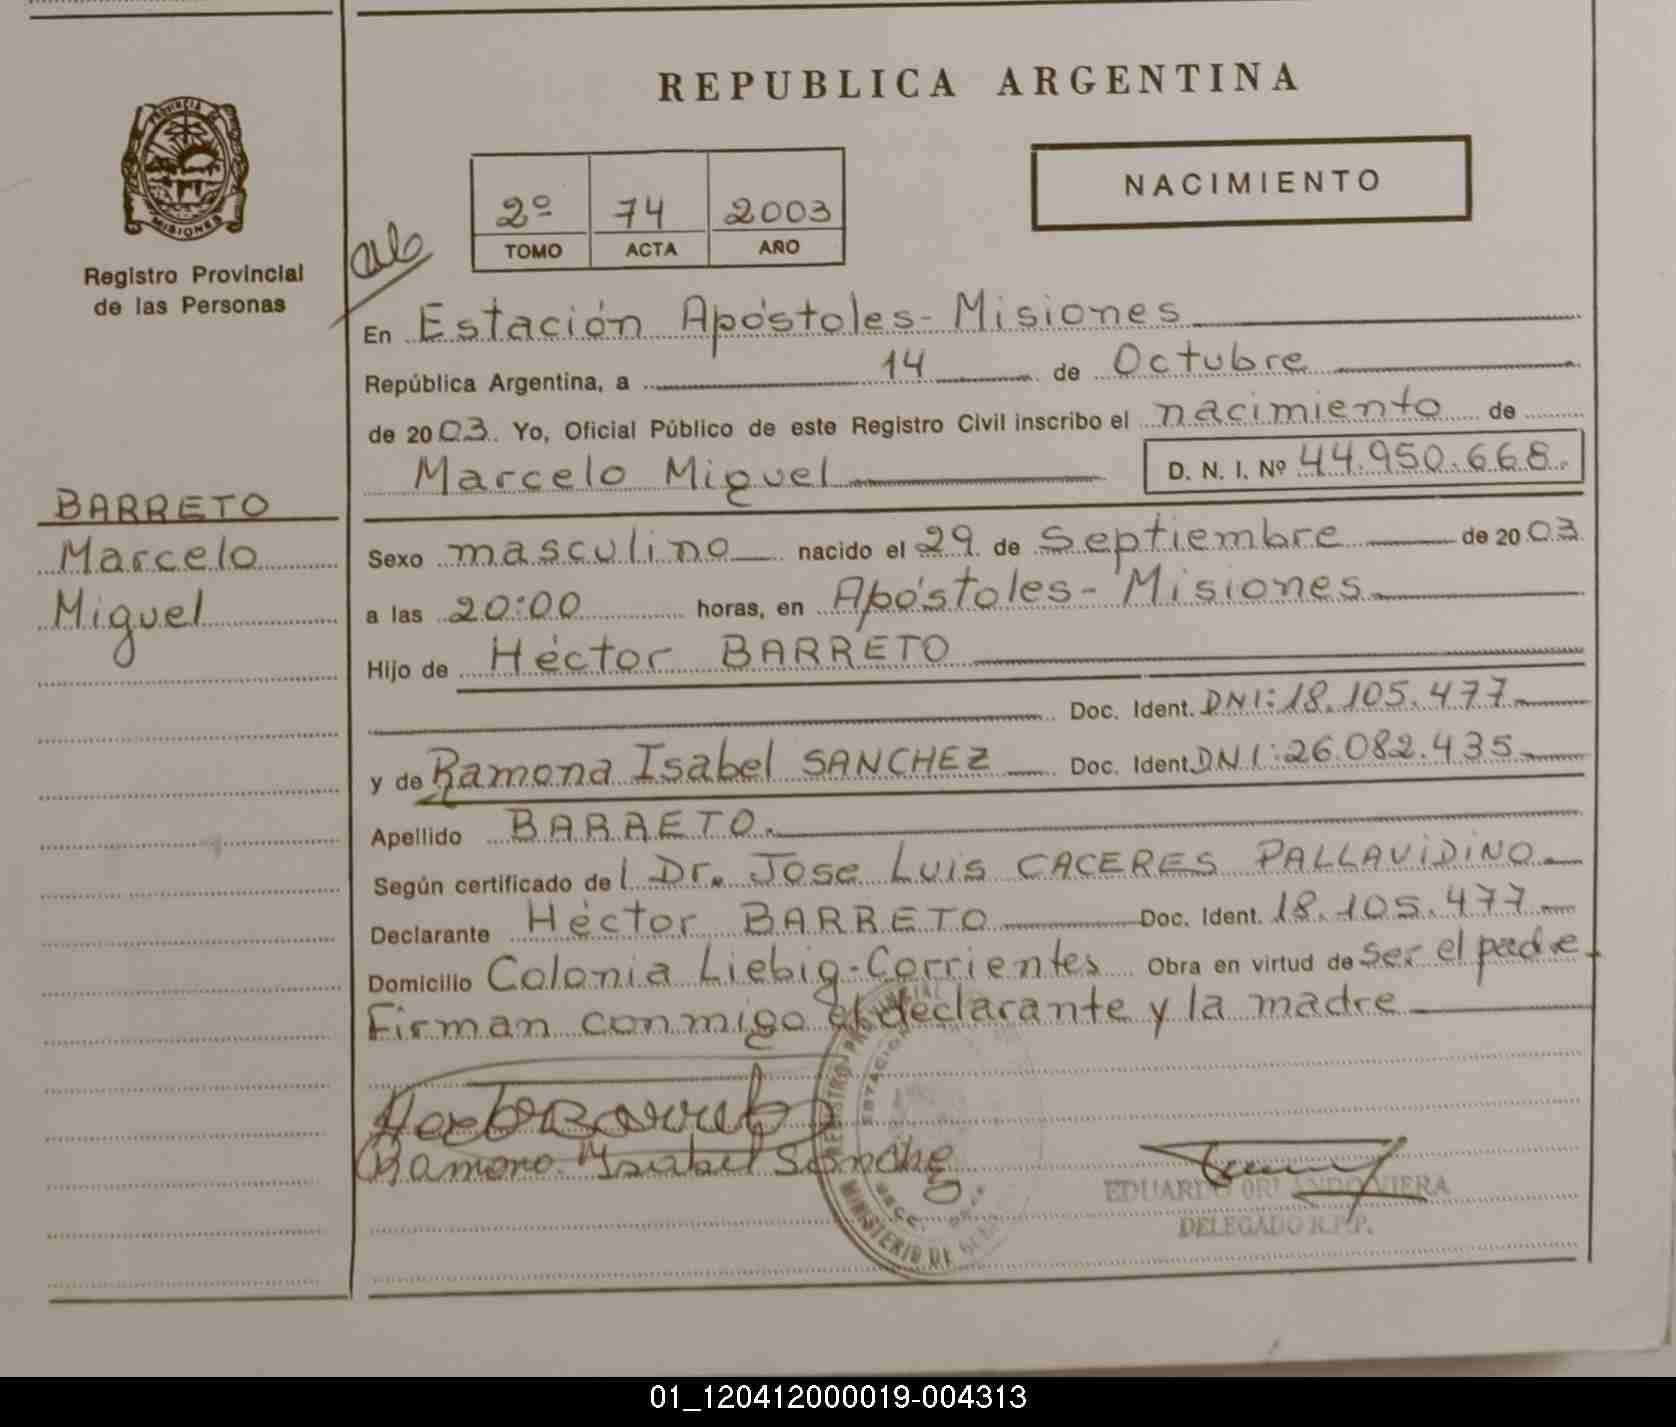 REPUBLICA ARGENTINA
PROVINCIA DE
MISIONES
Registro Provincial
de las Personas
2º 74 2003
TOMO ACTA AÑO
NACIMIENTO
En Estación Apóstoles - Misiones
República Argentina, a 14 de Octubre
de 2003. Yo, Oficial Público de este Registro Civil inscribo el nacimiento de
Marcelo Miguel D. N. I. Nº 44.950.668.
BARRETO
Marcelo
Miguel
Sexo masculino nacido el 29 de Septiembre de 2003
a las 20:00 horas, en Apóstoles - Misiones
Hijo de Héctor BARRETO
Doc. Ident. DNI: 18.105.477
y de Ramona Isabel SANCHEZ Doc. Ident. DNI: 26.082.435
Apellido BARRETO.
Según certificado del Dr. Jose Luis CACERES PALLAVIDINO
Declarante Héctor BARRETO Doc. Ident. 18.105.477
Domicilio Colonia Liebig - Corrientes Obra en virtud de ser el padre
Firman conmigo el declarante y la madre
Ramona Isabel Sanche
REGISTRO PROVINCIAL
MINISTERIO DE
EDUARDO ORLANDO VIERA
DELEGADO R.P.P.
01_120412000019-004313